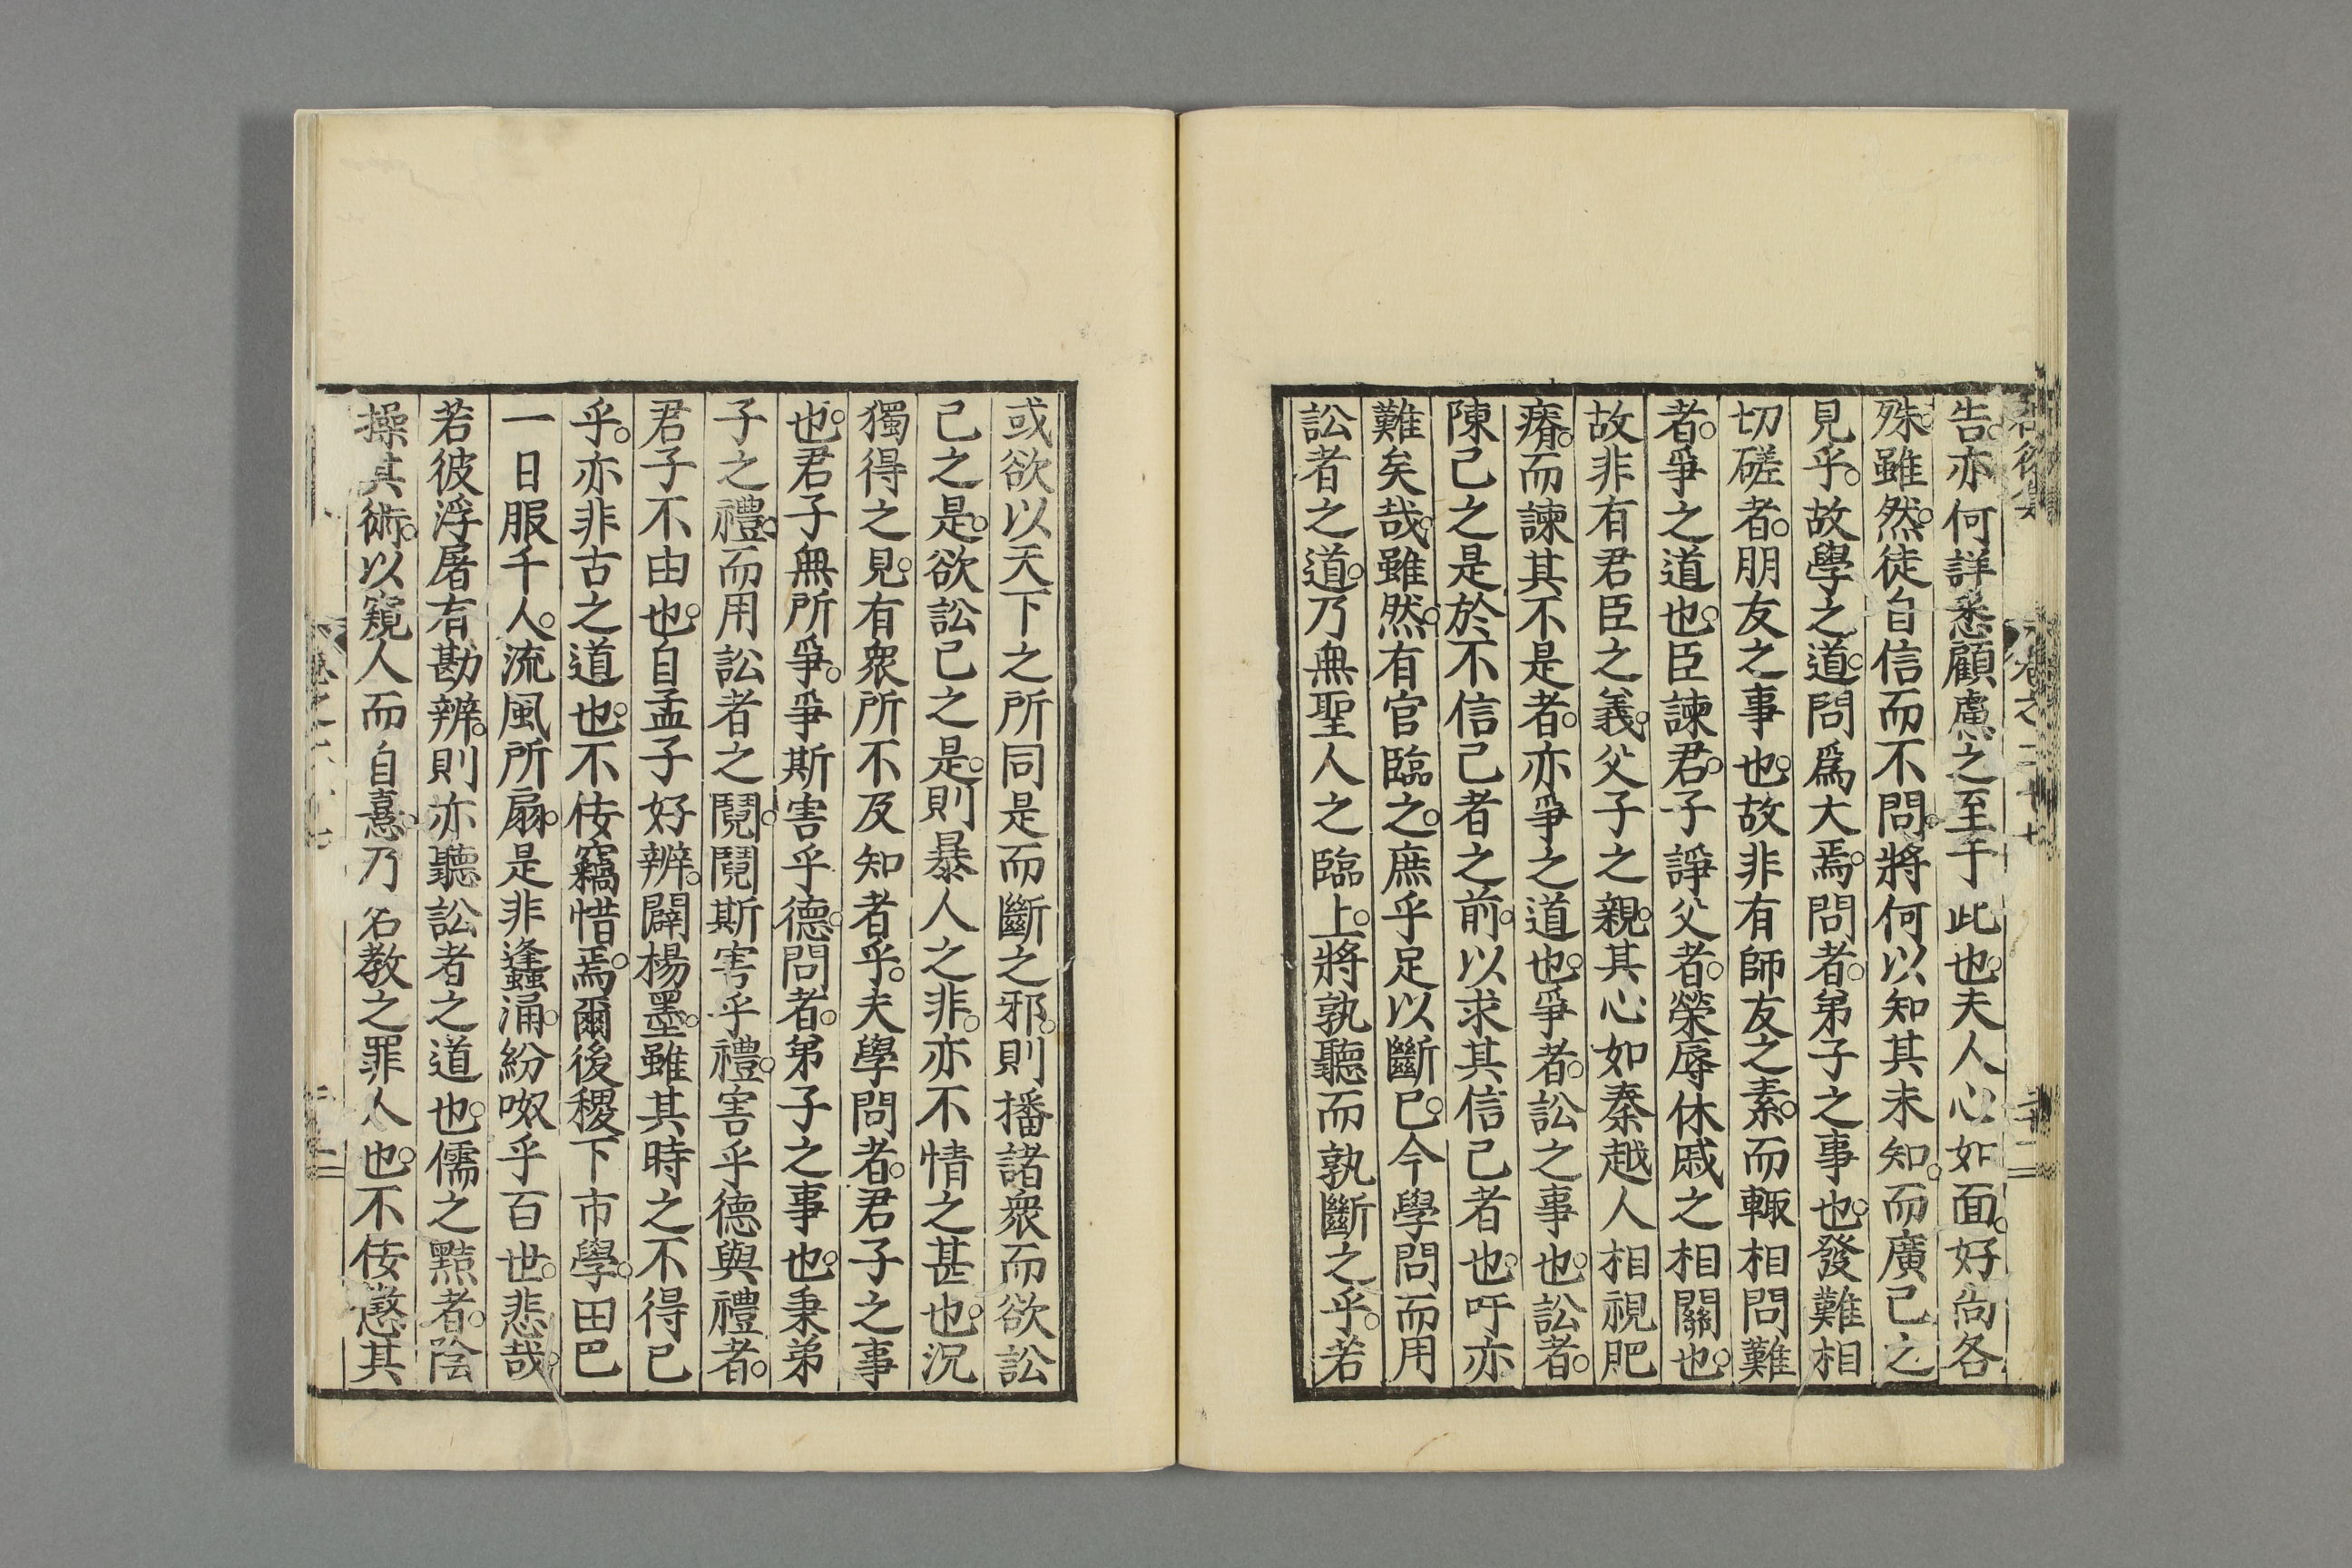 告。亦何詳悉顧慮之至于此也。夫人心如面。好尚各
殊。雖然。徒自信而不問。將何以知其未知。而廣己之
見乎。故學之道。問爲大焉。問者。弟子之事也。發難相
切磋者。朋友之事也。故非有師友之素。而輙相問難
者。爭之道也。臣諫君。子諍父者。榮辱休戚之相關也。
故非有君臣之義。父子之親。其心如秦越人相視肥
瘠。而諫其不是者。亦爭之道也。爭者。訟之事也。訟者。
陳己之是於不信己者之前。以求其信己者也。吁亦
難矣哉。雖然。有官臨之。庶乎足以斷已。今學問而用
訟者之道。乃無聖人之臨上。將孰聽而孰斷之乎。若
或欲以天下之所同是而斷之邪。則播諸衆而欲訟
己之是。欲訟己之是。則暴人之非。亦不情之甚也。況
獨得之見。有衆所不及知者乎。夫學問者。君子之事
也。君子無所爭。爭斯害乎德。問者。弟子之事也。秉弟
子之禮。而用訟者之鬩。鬩斯害乎禮。害乎德與禮者。
君子不由也。自孟子好辨。闢楊墨。雖其時之不得已
乎。亦非古之道也。不佞竊惜焉。爾後稷下市學。田巴
一日服千人。流風所扇。是非蠭涌。紛呶乎百世。悲哉。
若彼浮屠有勘辨。則亦聽訟者之道也。儒之黠者。陰
操其術。以窺人而自憙。乃名教之罪人也。不佞憖其